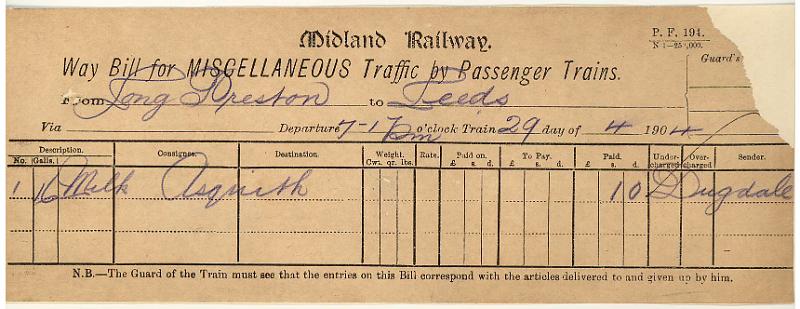 Midland Railway.
P. F. 194.
Way Bill for MISCELLANEOUS Traffic by Passenger Trains.
Guard's
From Long Preston to Leeds
Via Departure 7-17pm o'clock Train 29 day of 4 1904
Description. Consignee. Destination. Weight. Rate. Paid on. To Pay. Paid. Under-charged Over-charged Sender.
No. Galls. Cwt. qr. lbs. £ s. d. £ s. d. £ s. d.
1 16 Milk Asquith 1 0 Dugdale
N.B.—The Guard of the Train must see that the entries on this Bill correspond with the articles delivered to and given up by him.